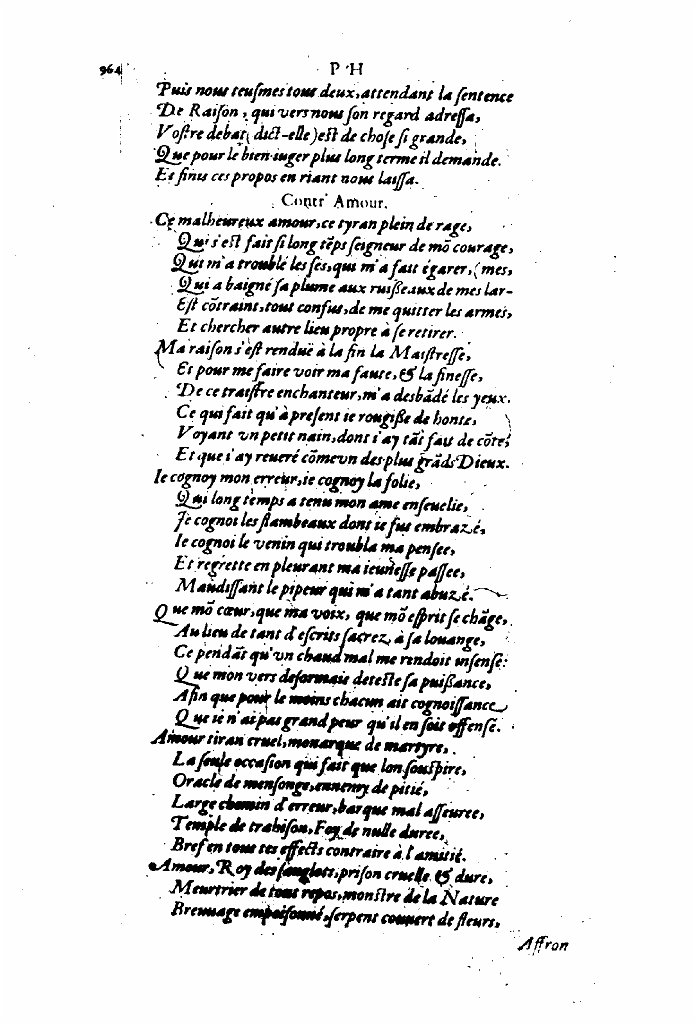 964
P H
Puis nous teusmes tous deux, attendant la sentence
De Raison, qui vers nous son regard adressa,
Vostre debat (dict-elle) est de chose si grande,
Que pour le bien iuger plus long terme il demande.
Et finis ces propos en riant nous laissa.
Contr' Amour.
Ce malheureux amour, ce tyran plein de rage,
Qui s'est fait si long tẽps seigneur de mõ courage,
Qui m'a troublé les sẽs, qui m'a fait égarer, (mes,
Qui a baigné sa plume aux ruisseaux de mes lar-
Est cõtraint, tout confus, de me quitter les armes,
Et chercher autre lieu propre à se retirer.
Ma raison s'est renduë à la fin la Maistresse,
Et pour me faire voir ma faute, & la finesse,
De ce traistre enchanteur, m'a desbãdé les yeux.
Ce qui fait qu'à present ie rougisse de honte,
Voyant vn petit nain, dont i'ay tãt fait de cõte,
Et que i'ay reueré cõme vn des plus grãds Dieux.
Ie cognoy mon erreur, ie cognoy la folie,
Qui long temps a tenu mon ame enseuelie,
Je cognoi les flambeaux dont ie fus embrazé,
Ie cognoi le venin qui troubla ma pensee,
Et regrette en pleurant ma ieunesse passee,
Maudissant le pipeur qui m'a tant abuzé.
Que mõ cœur, que ma voix, que mõ esprit se chãge,
Au lieu de tant d'escrits sacrez à sa louange,
Ce pendãt qu'vn chaud mal me rendoit insensé:
Que mon vers desormais deteste sa puissance,
Afin que pour le moins chacun ait cognoissance
Que ie n'ai pas grand peur qu'il en soit offensé.
Amour tiran cruel, monarque de martyre,
La seule occasion qui fait que lon souspire,
Oracle de mensonge, ennemy de pitié,
Large chemin d'erreur, barque mal asseuree,
Temple de trahison, Foy de nulle duree,
Bref en tous tes effects contraire à l'amitié.
Amour, Roy des sanglots, prison cruelle & dure,
Meurtrier de tout repos, monstre de la Nature
Breuuage empoisonné, serpent couuert de fleurs,
Affron